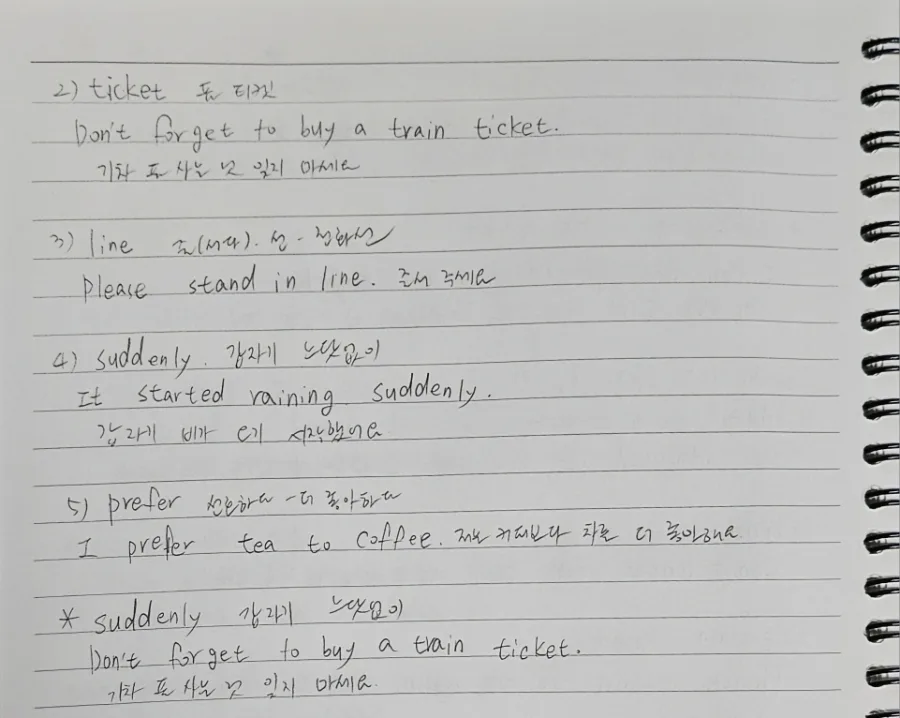 2) ticket 표 티켓
Don't forget to buy a train ticket.
기차 표 사는 것 잊지 마세요
3) line 줄(서다). 선 - 전화선
Please stand in line. 줄서 주세요
4) suddenly. 갑자기 느닷없이
It started raining suddenly.
갑자기 비가 오기 시작했어요
5) prefer 선호하다 - 더 좋아하다
I prefer tea to coffee. 저는 커피보다 차를 더 좋아해요
* suddenly 갑자기 느닷없이
Don't forget to buy a train ticket.
기차 표 사는 것 잊지 마세요.